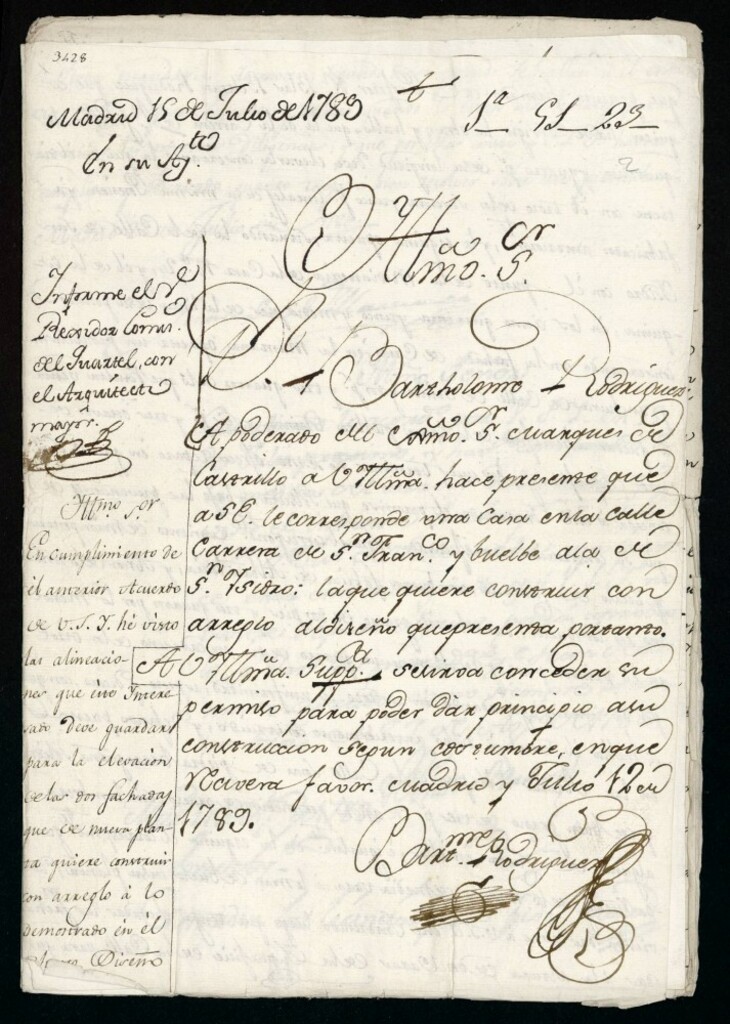 3428
Madrid 15 de Julio de 1789
1ª 51 23
2
En su Ayto
Yllmo. Sor
Informe el Sor
Regidor Comro.
del Quartel, con
el Arquitecto
mayor.
Dn. Bartholome Rodriguez
Apoderado del Exmo. Sr. Marques de
Castrillo a V Yllma. hace presente que
a S E. le corresponde una Casa en la calle
Carrera de Sn. Franco. y buelbe ala de
Sn. Ysidro: la que quiere construir con
arreglo al diseño que presenta portanto.
A V Yllma. Suppca. se sirva conceder su
permiso para poder dar principio a su
construccion segun costumbre, en que
Recivera favor. Madrid y Julio 12 de
1789.
Bartme. Rodriguez
Yllmo. Sor
En cumplimiento de
el anterior Acuerdo
de V. S. Y. hé visto
las alineacio-
nes que éste Intere-
sado deve guardar
para la elevacion
de las dos fachadas
que de nueva plan-
ta quiere construir
con arreglo à lo
demostrado en él
Diseño